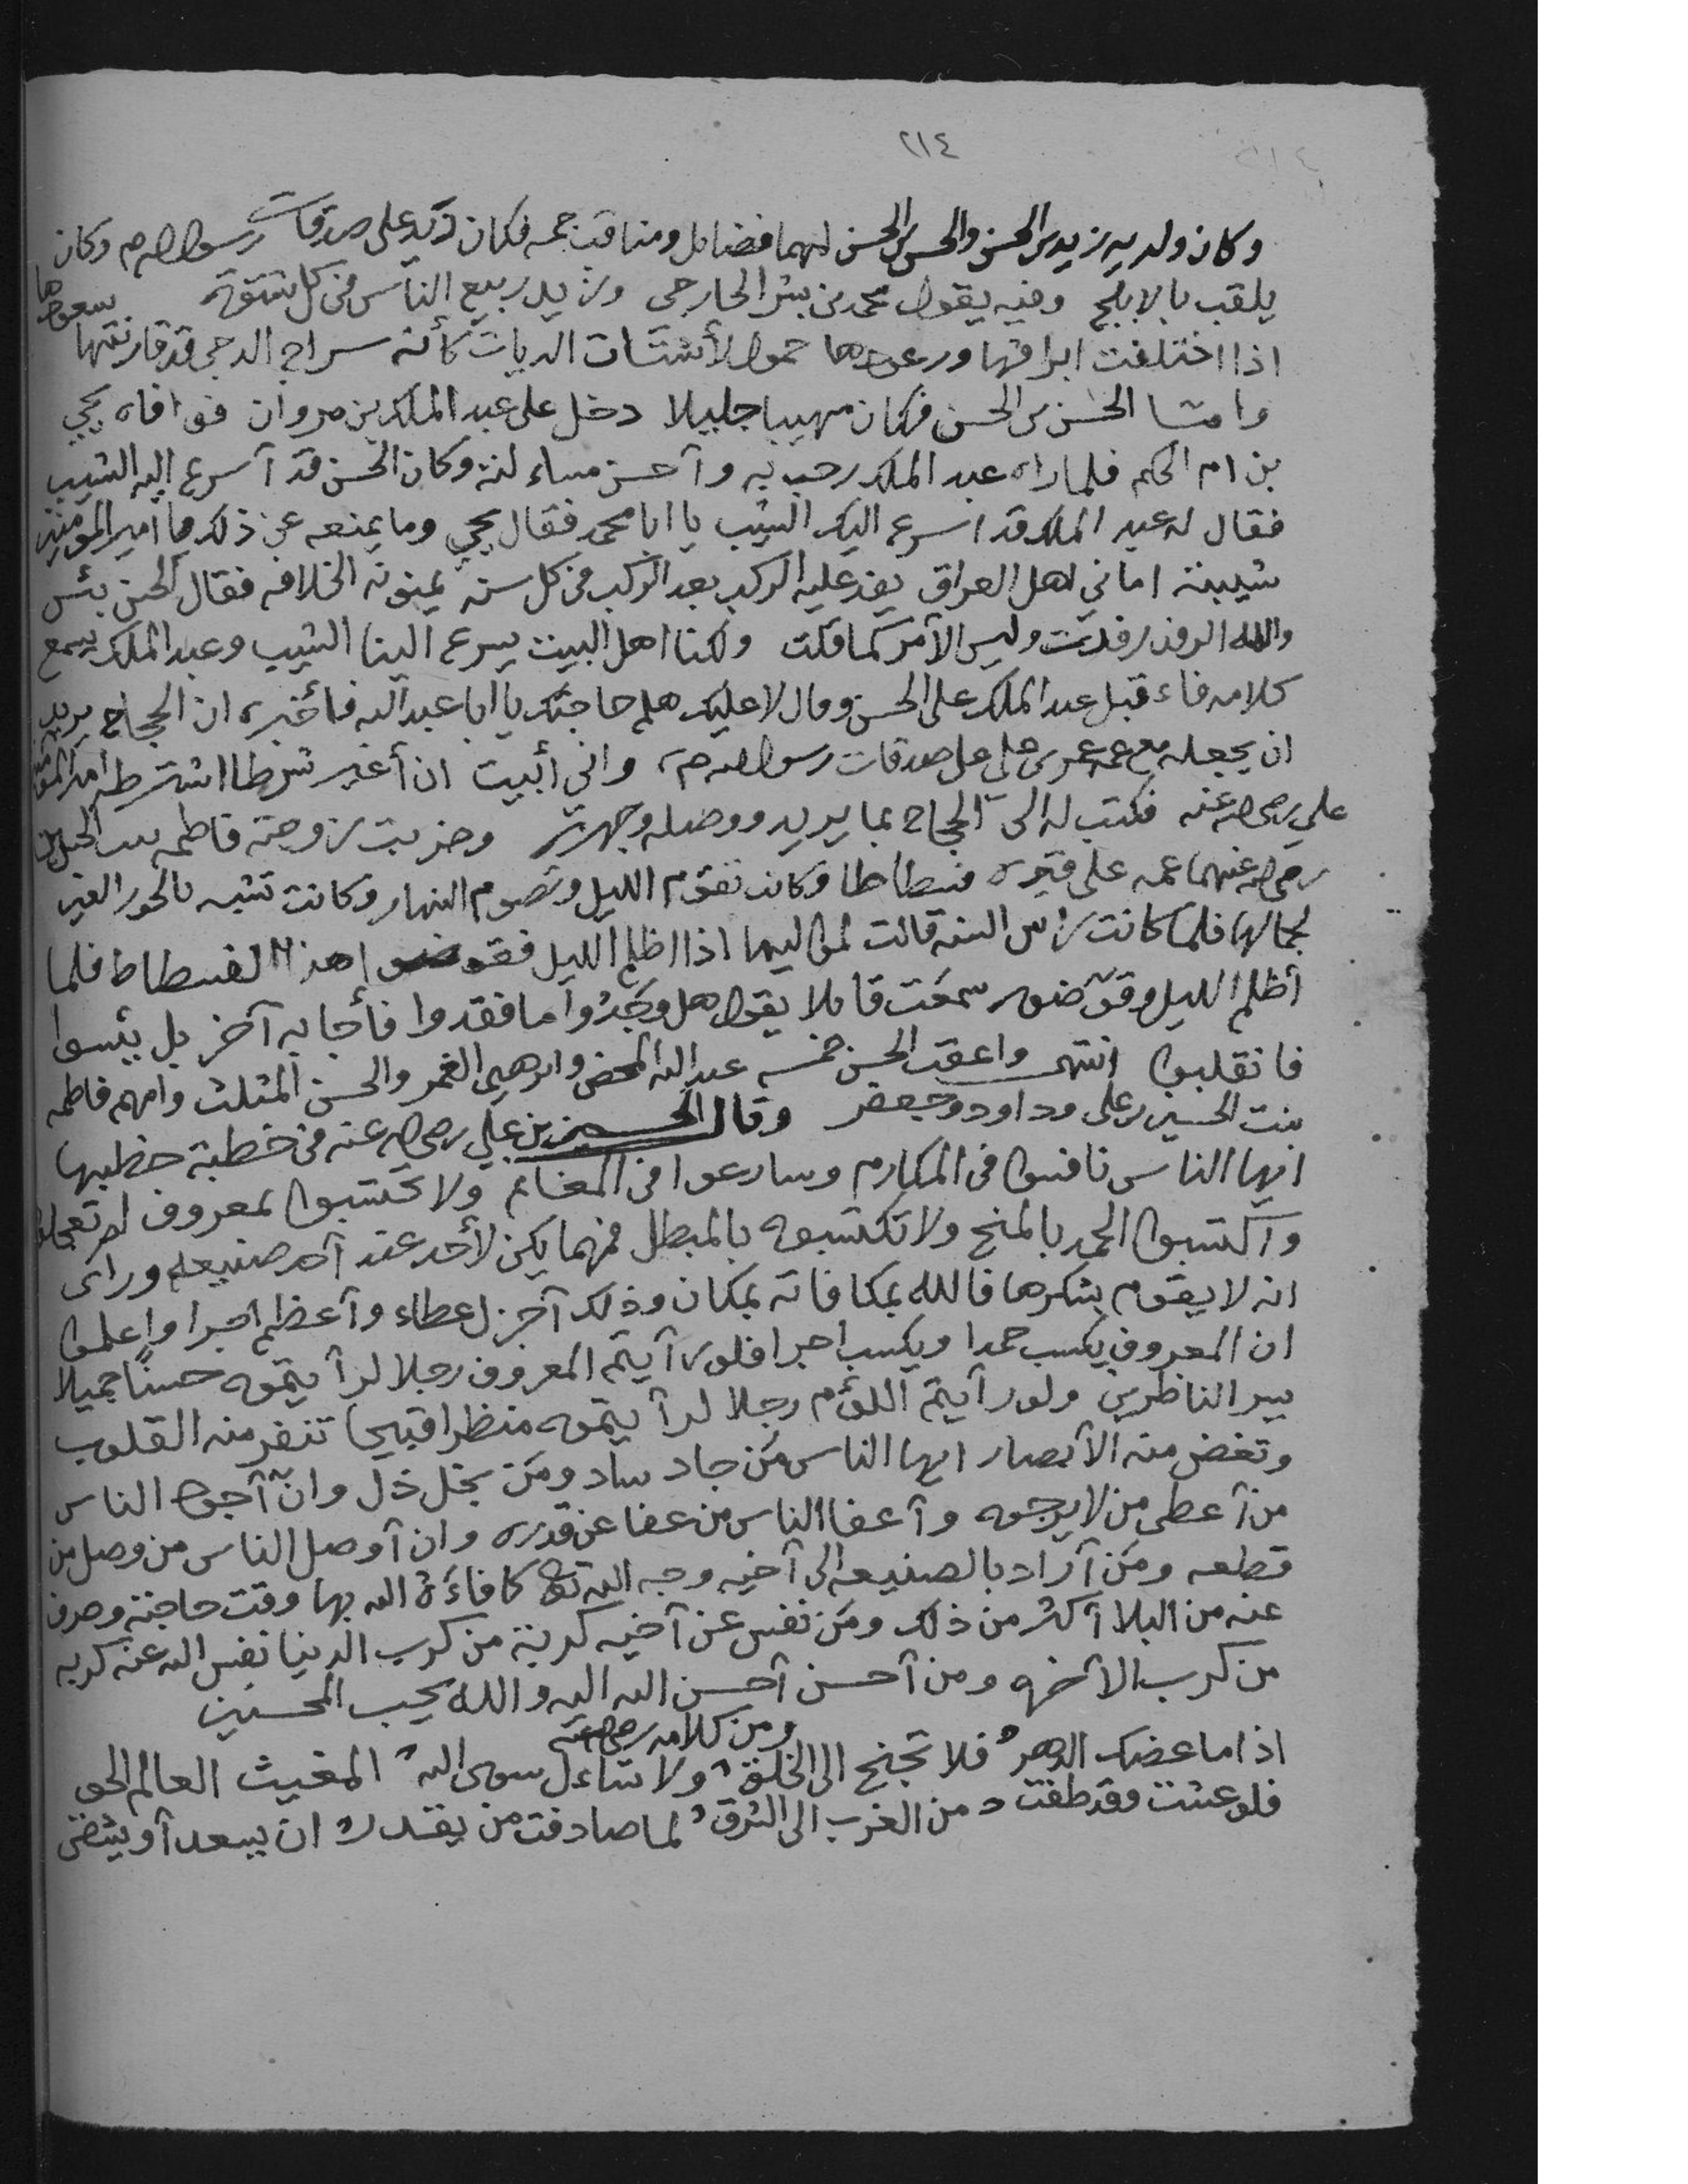 ٢١٤
وكان ولديه زيد بن الحسن والحسن بن الحسن لهما فضايل ومناقب جمه فكان زيد على صدقات رسول الله ص وكان
يلقب بالابلج وفيه يقول محمد بن بشر الخارجى وزيد ربيع الناس فى كل شتوة
اذا اختلفت ابراقها ورعودها حمول لأشتات الديات كأنه سراج الدجى قد قارنتها سعودها
وامّا الحسن بن الحسن فكان مهيبا جليلا دخل على عبد الملك بن مروان فوافاه يحيي
بن ام الحكم فلما راه عبد الملك رحب به وآحسن مساءلته وكان الحسن قد آسرع اليه الشيب
فقال له عبد الملك قد اسرع اليك الشيب يا ابا محمد فقال يحيي وما يمنعه عن ذلك يا امير المومنين
شيبته اماني اهل العراق يفد عليه الركب بعد الركب فى كل سنه يمنونه الخلافه فقال الحسن بئس
والله الرفد رفدت وليس الآمر كما قلت ولكنا اهل البيت يسرع الينا الشيب وعبد الملك يسمع
كلامه فاقبل عبد الملك على الحسن وقال لا عليك هلم حاجتك يا ابا عبد الله فأخبره ان الحجاج يريد
ان يجعله مع عمه عمر بن علي على صدقات رسول الله ص واني أبيت ان أغير شرطا اشترطه امير المؤمنين
علي رضى الله عنه فكتب له الى الحجاج بما يريد ووصله وجهزه وضربت زوجته فاطمه بنت الحسين
رضى الله عنهما عمه على قبره فسطاطا وكانت تقوم الليل وتصوم النهار وكانت تشبه بالحور العين
لجمالها فلما كانت رأس السنه قالت لمواليها اذا اظلم الليل فقوضوا هذا الفسطاط فلما
أظلم الليل وقوّضوه سمعت قايلا يقول هل وجدوا ما فقدوا فأجابه آخر بل يئسوا
فانقلبوا انتهى واعقب الحسن خمسه عبد الله المحض وابرهيم الغمر والحسن المثلث وامهم فاطمه
بنت الحسين بن على وداود وجعفر وقال الحسين بن علي رضى الله عنه فى خطبة خطبها
ايها الناس نافسوا فى المكارم وسارعوا فى المغانم ولا تحتسبوا لمعروف لم تعجلوه
وآكتسبوا الحمد بالمنح ولا تكتسبوه بالمطل فمهما يكن لأحد عند آحد صنيعه وراى
انه لا يقوم بشكرها فالله بمكافاته بمكان وذلك آجزل عطاء وآعظم اجرا واعلموا
ان المعروف يكسب حمدا ويكسب اجرا فلو رآيتم المعروف رجلا لرآيتموه حسنًا جميلا
يسر الناظرين ولو رآيتم اللؤم رجلا لرآيتموه منظرا قبيحا تنفر منه القلوب
وتغض منه الآبصار ايها الناس مَن جاد ساد ومَن بخل ذل وانّ آجود الناس
من آعطى من لا يرجوه وآعفا الناس من عفا عن قدره وان آوصل الناس من وصل من
قطعه ومَن آراد بالصنيعه الى آخيه وجه الله تع كافاءَه الله بها وقت حاجته وصرف
عنه من البلا آكثر من ذلك ومَن نفس عن آخيه كربة من كرب الدنيا نفس الله عنه كربه
من كرب الآخره ومن آحسن آحسن الله اليه والله يحب المحسنين
ومن كلامه رضى الله عنه
اذا ما عضك الدهر فلا تجنح الى الخلق ولا تساءل سوى الله المغيث العالم الحق
فلو عشت وقد طفت من الغرب الى الشرق لما صادفت من يقدر ان يسعد آو يشقى